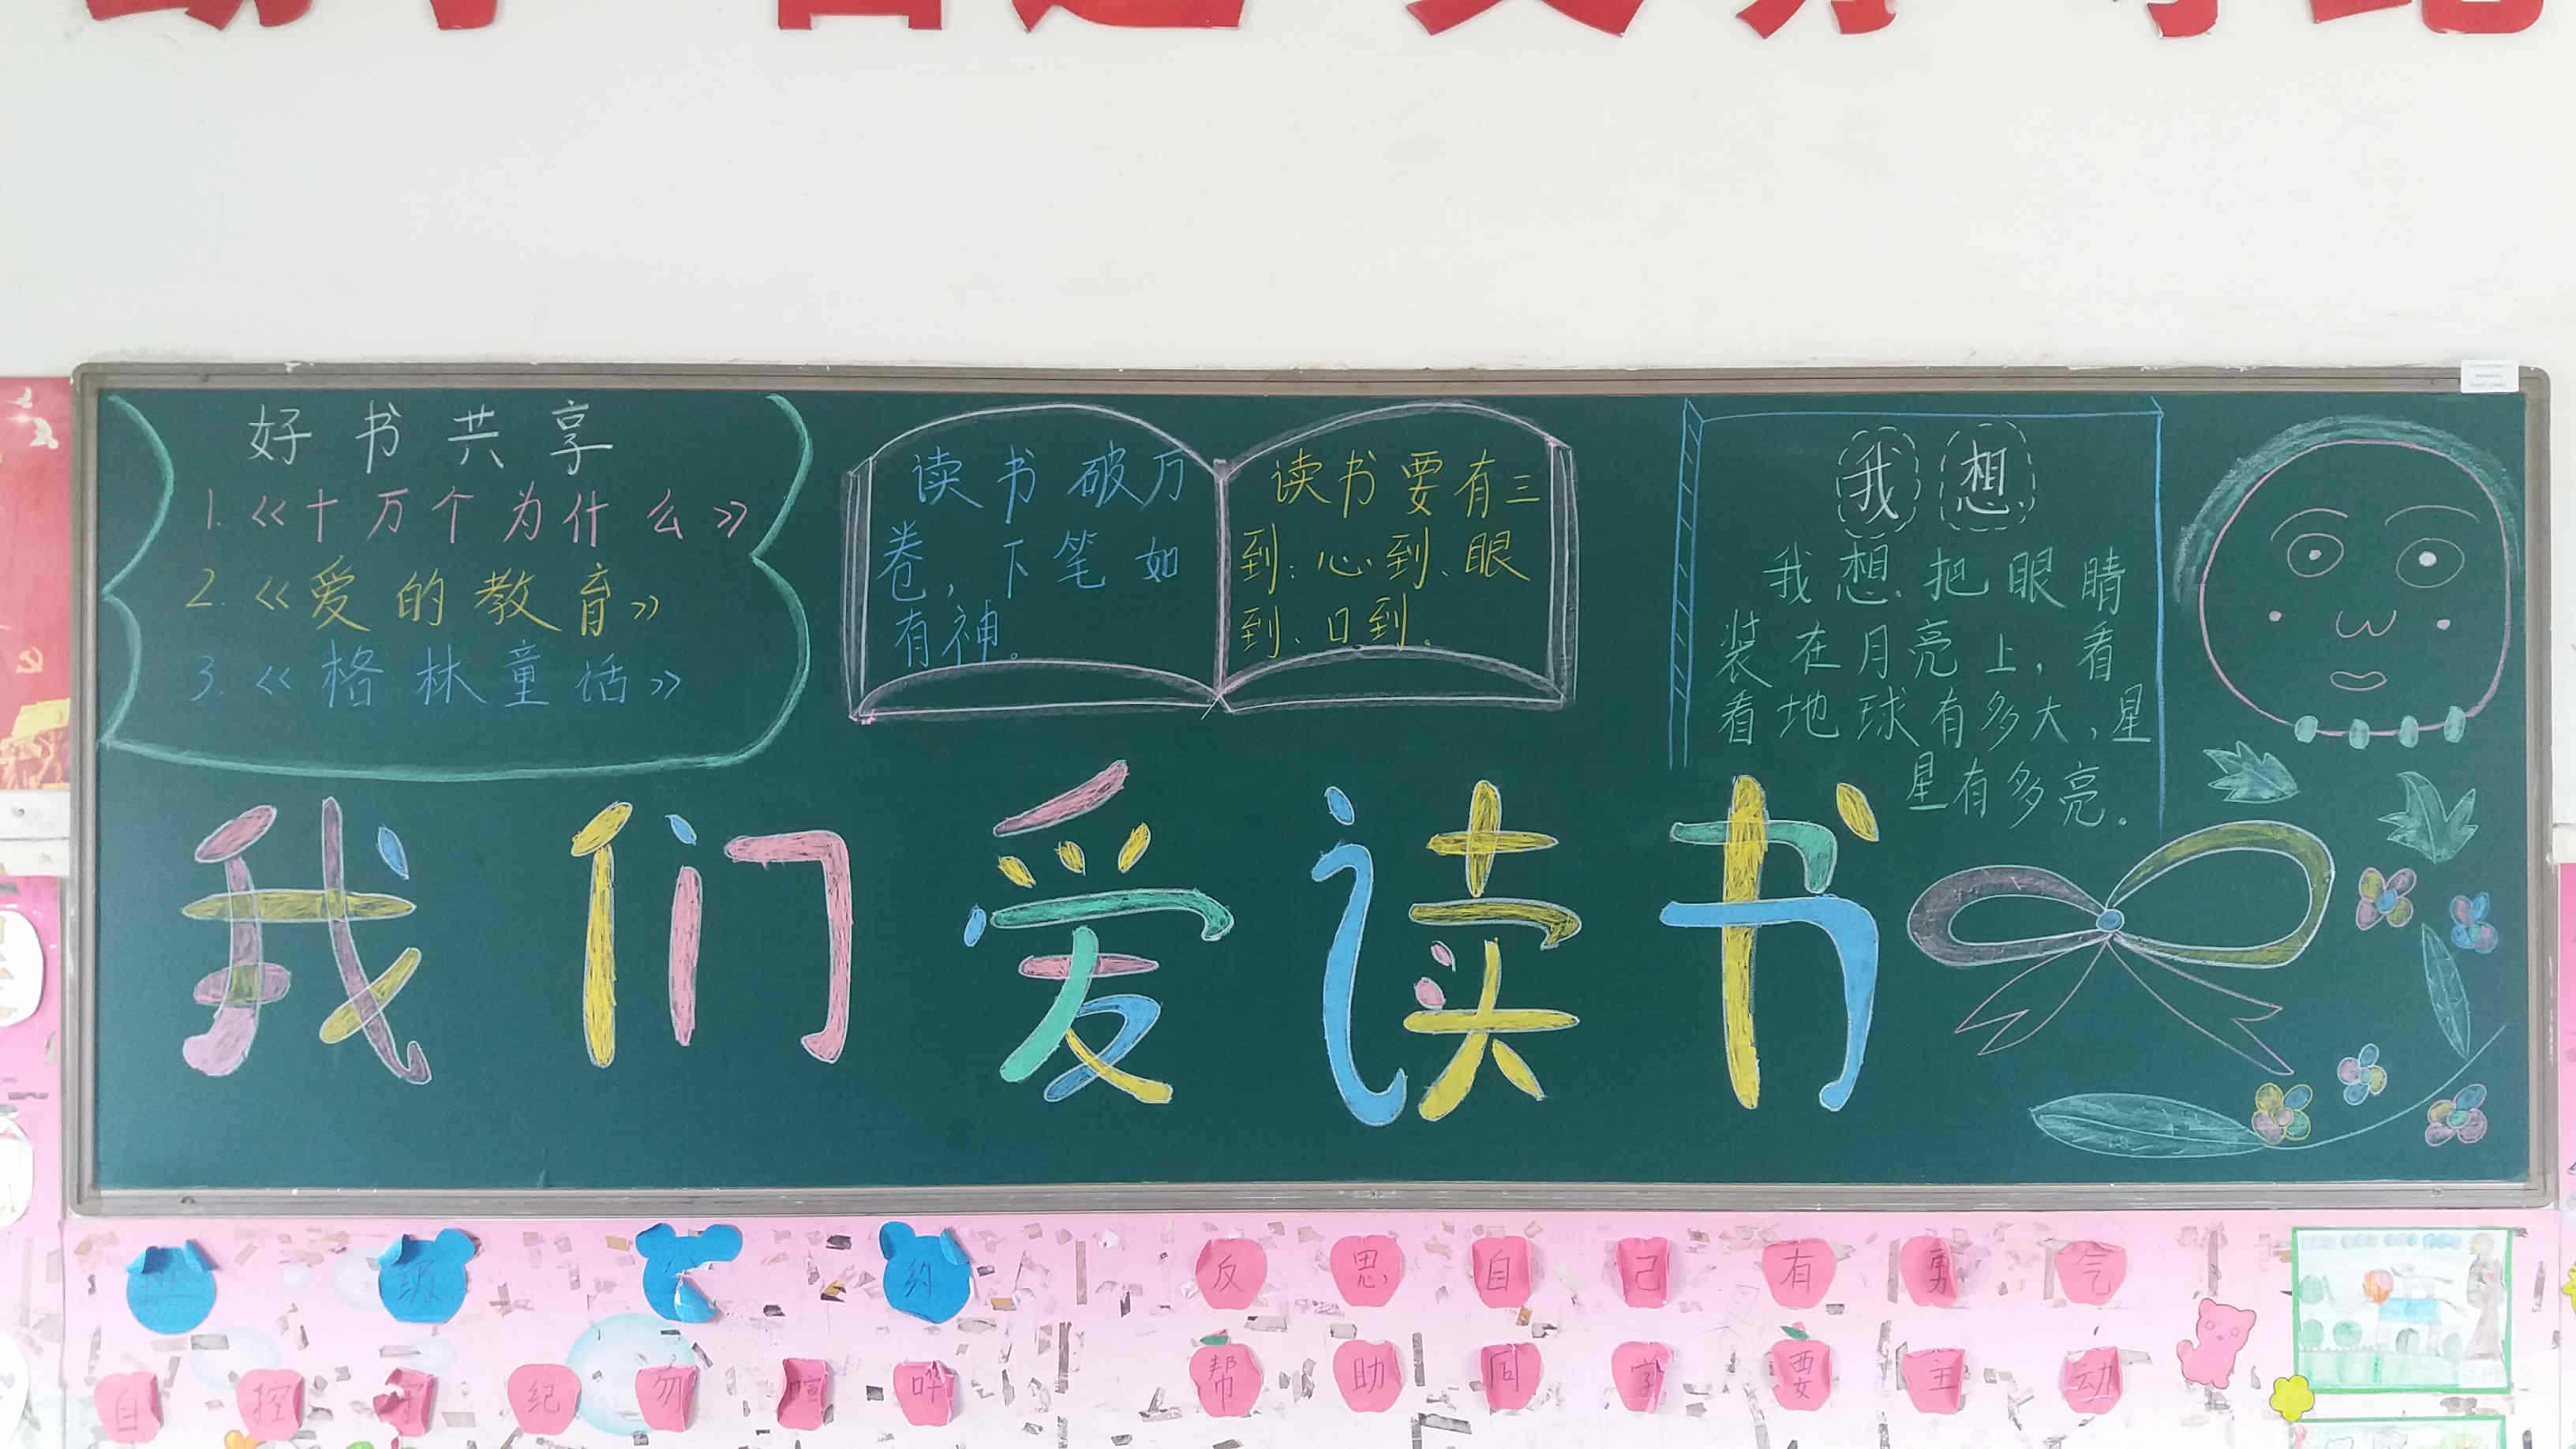 好书共享
1.《十万个为什么》
2.《爱的教育》
3.《格林童话》
读书破万
卷，下笔如
有神。
读书要有三
到：心到、眼
到、口到。
我想
我想把眼睛
装在月亮上，看
看地球有多大，星
星有多亮。
我们爱读书
级 约
自控守纪勿喧哗
反思自己有勇气
帮助同学要主动